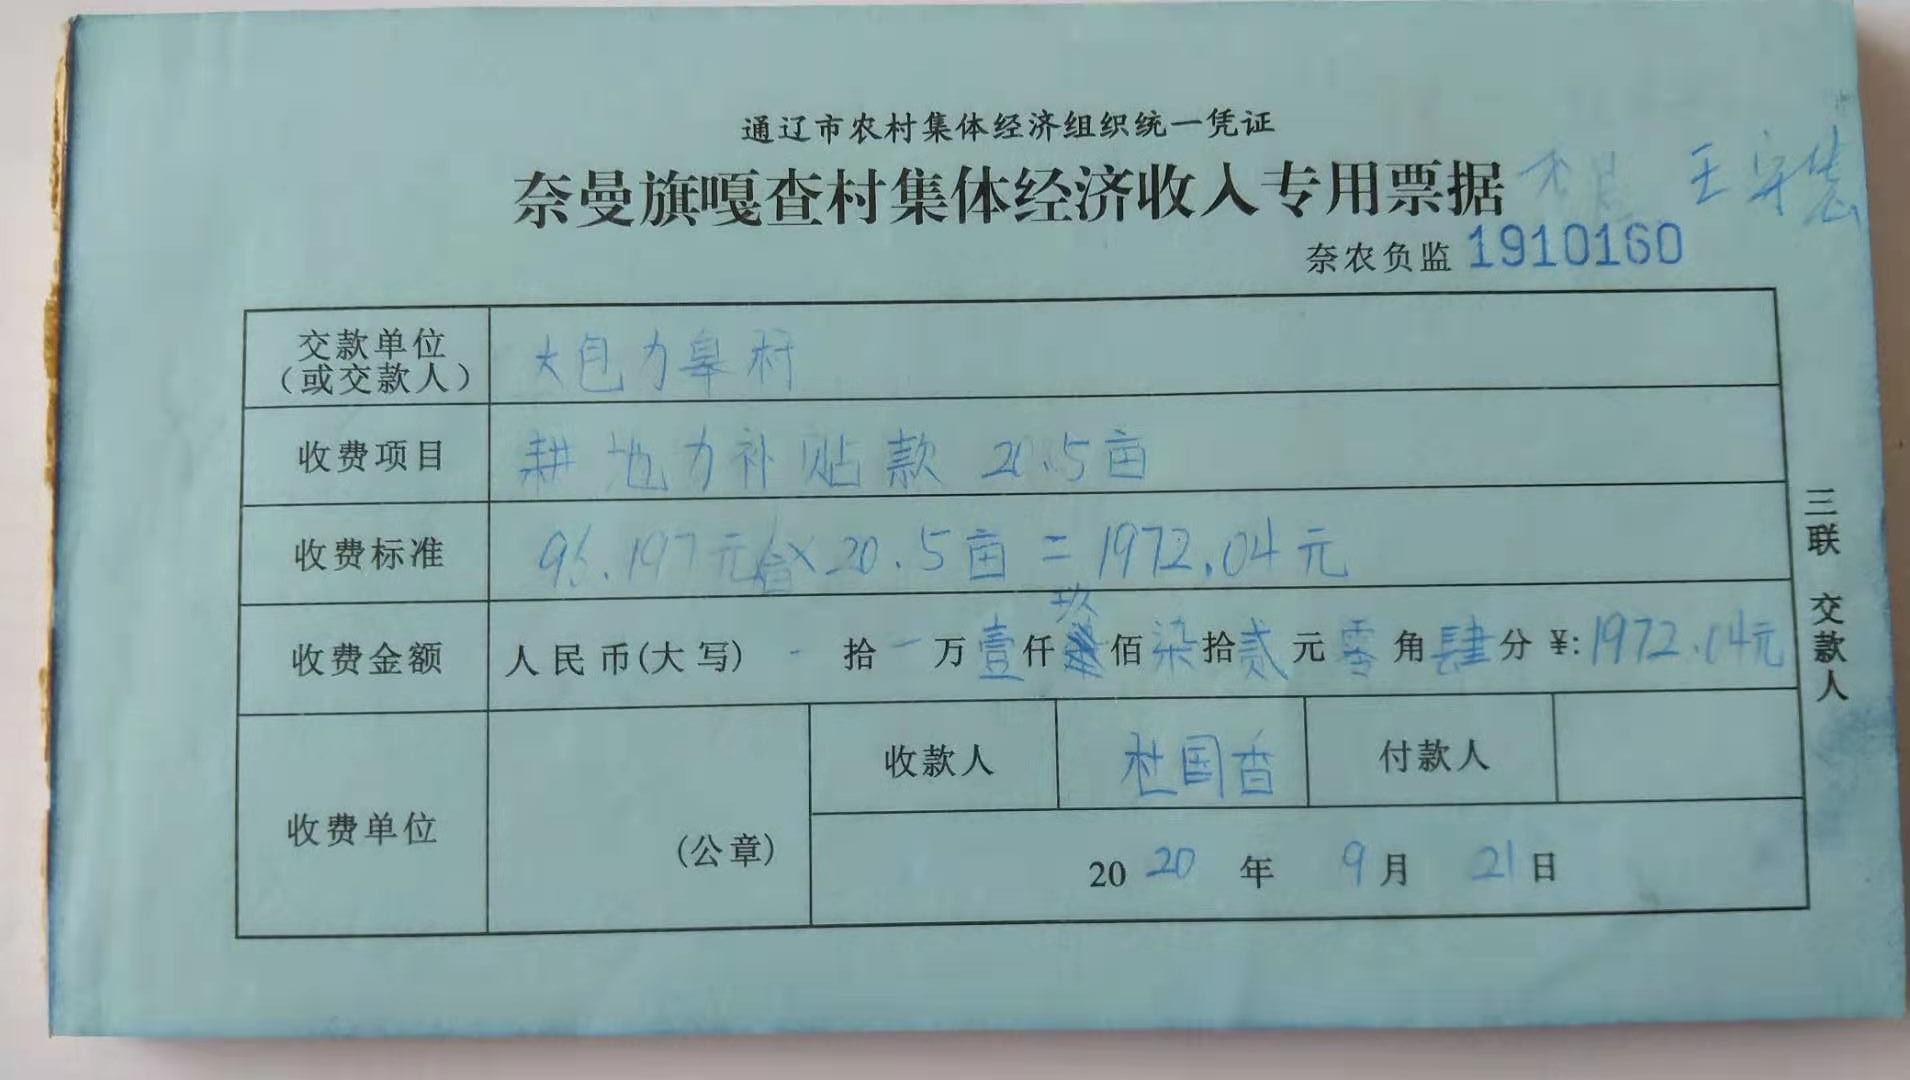 通辽市农村集体经济组织统一凭证
奈曼旗嘎查村集体经济收入专用票据 王守
奈农负监 1910160
交款单位（或交款人） 大包力皋村
收费项目 耕地力补贴款 20.5亩
收费标准 96.197元/亩×20.5亩=1972.04元
收费金额 人民币(大写) - 拾 一 万 壹 仟 玖 佰 柒 拾 贰 元 零 角 肆 分 ¥:1972.04元
收费单位 (公章) 收款人 杜国香 付款人
2020 年 9 月 21 日
三联 交款人